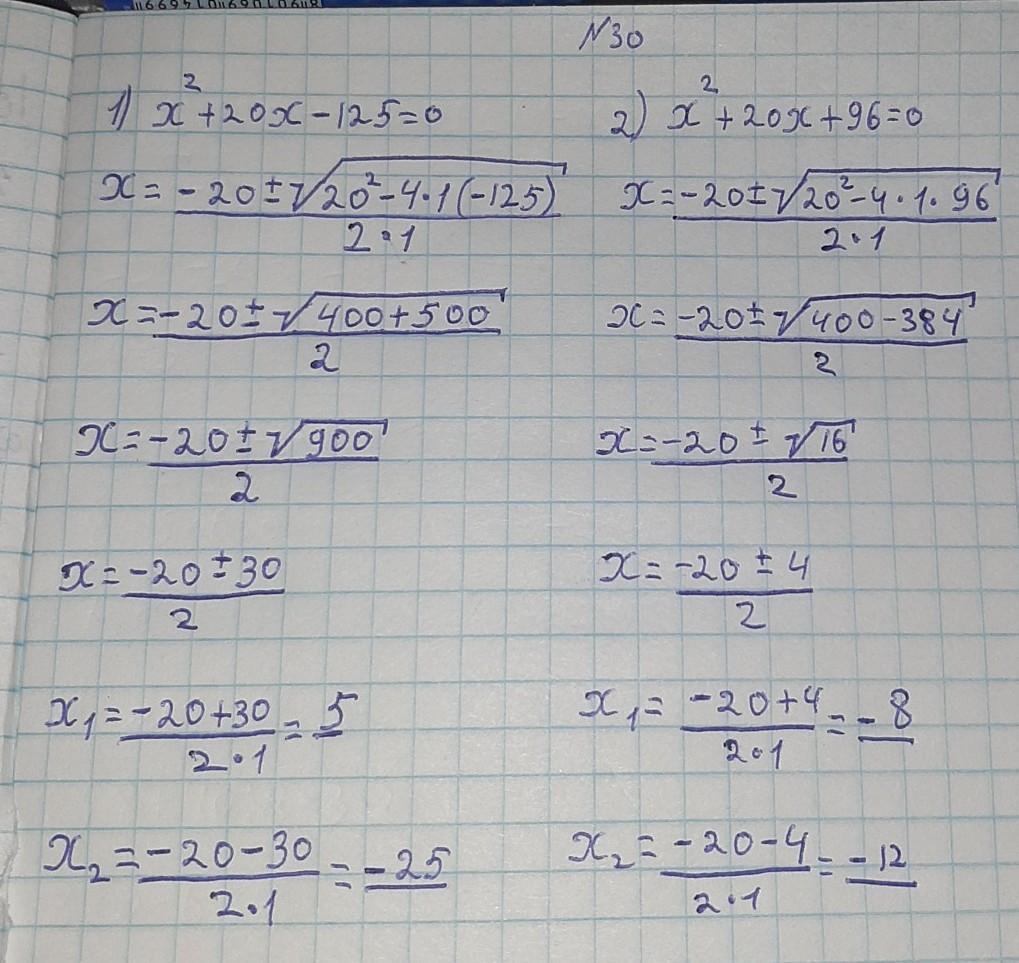 N30
1) x²+20x-125=0
x=(-20±√(20²-4·1(-125)))/(2·1)
x=(-20±√(400+500))/2
x=(-20±√900)/2
x=(-20±30)/2
x₁=(-20+30)/(2·1)=5
x₂=(-20-30)/(2·1)=-25
2) x²+20x+96=0
x=(-20±√(20²-4·1·96))/(2·1)
x=(-20±√(400-384))/2
x=(-20±√16)/2
x=(-20±4)/2
x₁=(-20+4)/(2·1)=-8
x₂=(-20-4)/(2·1)=-12